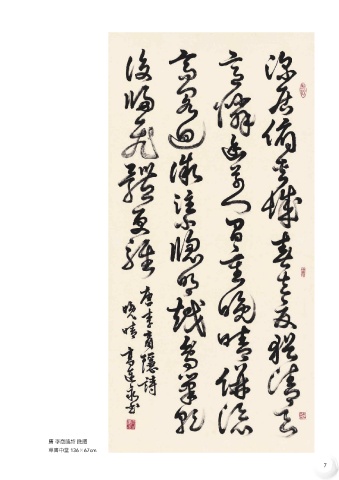 深居俯夹城春去夏猶清天
意憐幽草人間重晚晴併添
高閣迥微注小窗明越鳥巢乾
後歸飛體更輕
唐李商隱詩
晚晴 高
李商隐诗 晚晴
草書中堂 136×67cm
7